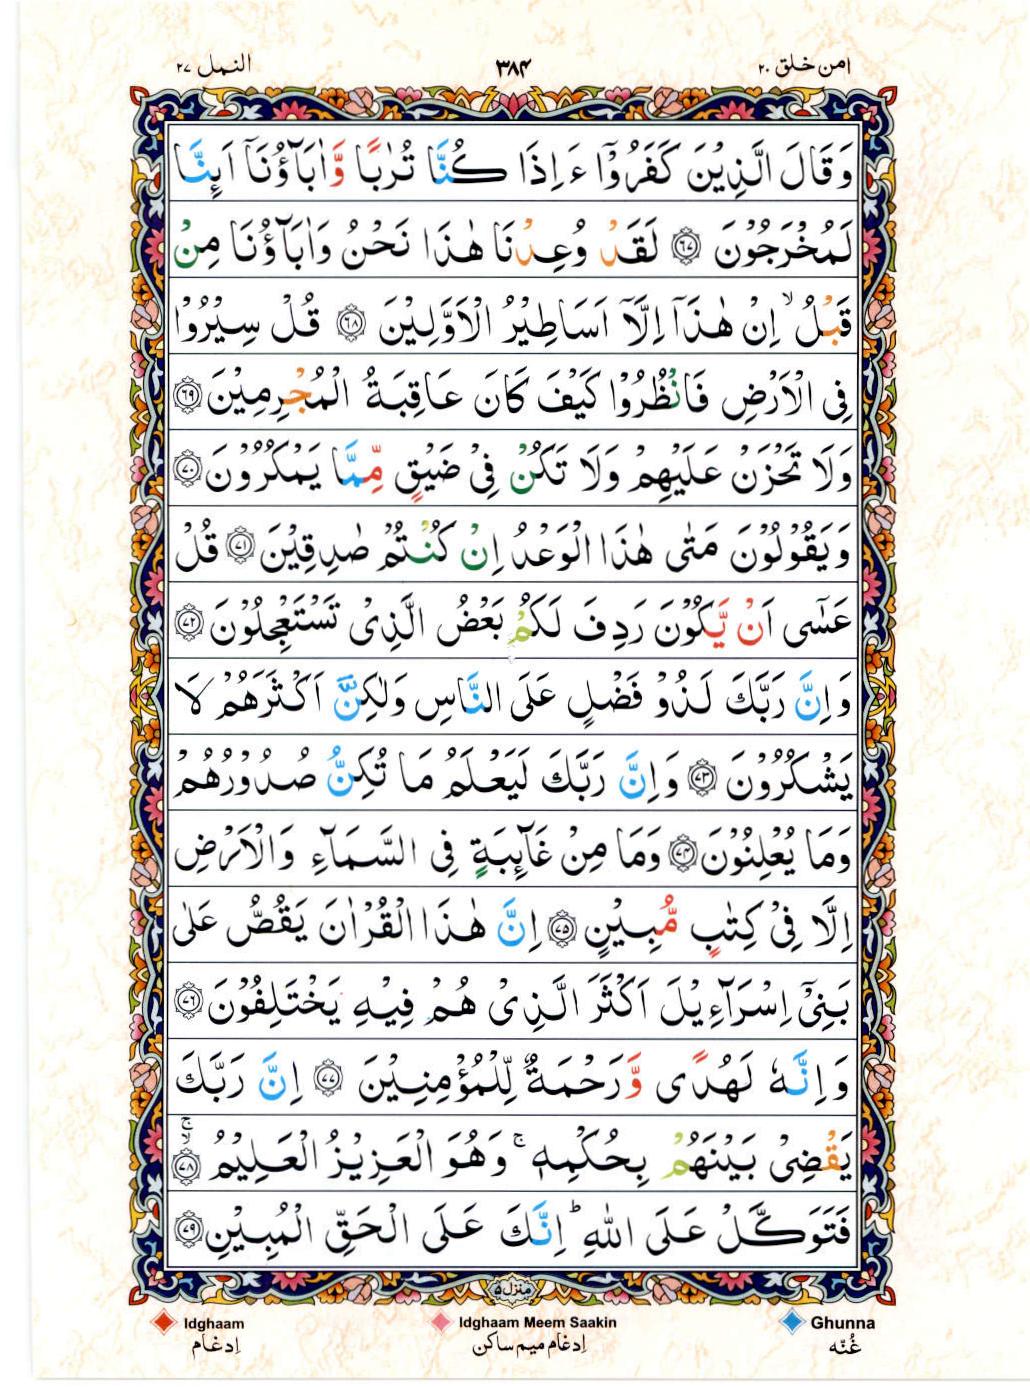 امن خلق ۲۰
۳۸۴
النمل ۲۷
وَقَالَ الَّذِيْنَ كَفَرُوْۤا ءَاِذَا كُنَّا تُرٰبًا وَّاٰبَآؤُنَاۤ اَىِٕنَّا
لَمُخْرَجُوْنَ ﴿۶۷﴾ لَقَدْ وُعِدْنَا هٰذَا نَحْنُ وَاٰبَآؤُنَا مِنْ
قَبْلُ ۙ اِنْ هٰذَاۤ اِلَّاۤ اَسَاطِيْرُ الْاَوَّلِيْنَ ﴿۶۸﴾ قُلْ سِيْرُوْا
فِى الْاَرْضِ فَانْظُرُوْا كَيْفَ كَانَ عَاقِبَةُ الْمُجْرِمِيْنَ ﴿۶۹﴾
وَلَا تَحْزَنْ عَلَيْهِمْ وَلَا تَكُنْ فِىْ ضَيْقٍ مِّمَّا يَمْكُرُوْنَ ﴿۷۰﴾
وَيَقُوْلُوْنَ مَتٰى هٰذَا الْوَعْدُ اِنْ كُنْتُمْ صٰدِقِيْنَ ﴿۷۱﴾ قُلْ
عَسٰۤى اَنْ يَّكُوْنَ رَدِفَ لَكُمْ بَعْضُ الَّذِىْ تَسْتَعْجِلُوْنَ ﴿۷۲﴾
وَاِنَّ رَبَّكَ لَذُوْ فَضْلٍ عَلَى النَّاسِ وَلٰكِنَّ اَكْثَرَهُمْ لَا
يَشْكُرُوْنَ ﴿۷۳﴾ وَاِنَّ رَبَّكَ لَيَعْلَمُ مَا تُكِنُّ صُدُوْرُهُمْ
وَمَا يُعْلِنُوْنَ ﴿۷۴﴾ وَمَا مِنْ غَآىِٕبَةٍ فِى السَّمَآءِ وَالْاَرْضِ
اِلَّا فِىْ كِتٰبٍ مُّبِيْنٍ ﴿۷۵﴾ اِنَّ هٰذَا الْقُرْاٰنَ يَقُصُّ عَلٰى
بَنِىْۤ اِسْرَآءِيْلَ اَكْثَرَ الَّذِىْ هُمْ فِيْهِ يَخْتَلِفُوْنَ ﴿۷۶﴾
وَاِنَّهٗ لَهُدًى وَّرَحْمَةٌ لِّلْمُؤْمِنِيْنَ ﴿۷۷﴾ اِنَّ رَبَّكَ
يَقْضِىْ بَيْنَهُمْ بِحُكْمِهٖ ۚ وَهُوَ الْعَزِيْزُ الْعَلِيْمُ ﴿۷۸﴾ ۙۚ
فَتَوَكَّلْ عَلَى اللّٰهِ ؕ اِنَّكَ عَلَى الْحَقِّ الْمُبِيْنِ ﴿۷۹﴾
منزل ۵
Idghaam
Idghaam Meem Saakin
Ghunna
اِدغام
اِدغام میم ساکن
غُنّه